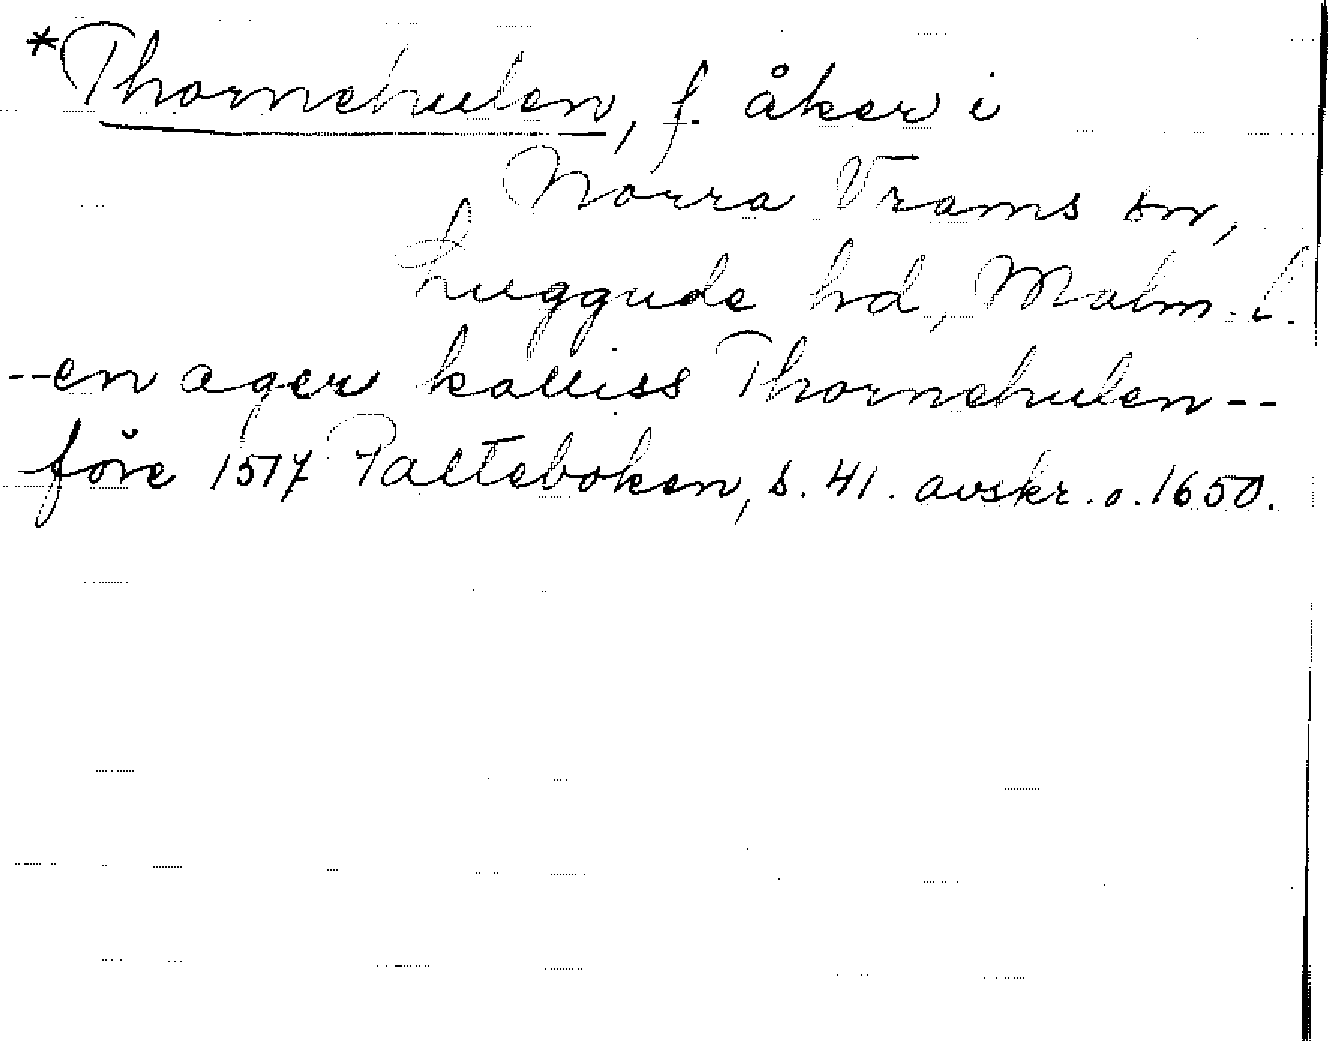 *Thornehulen, f. åker i
Norra Vrams sn,
Luggude hd, Malm. l.
--en ager kalliss Thornehulen--
före 1517 Palteboken, s. 41. avskr. o. 1650.